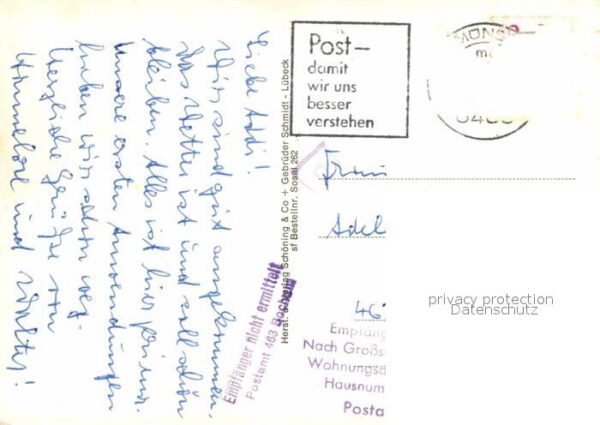 Liebe Addi!
Wir sind gut angekommen.
Das Wetter ist und soll schön
bleiben. Alles ist hier prima.
Unsere ersten Anwendungen
haben wir schon weg.
Herzliche Grüße von
Hannelore und Walter!
Post–
damit
wir uns
besser
verstehen
MÖNC
Schöning & Co + Gebrüder Schmidt - Lübeck
sf Bestellnr. Sosm 262
Empfänger nicht ermittelt
Postamt 463 Bochum
Frau
Adel
46
privacy protection
Datenschutz
Empfäng
Nach Großs
Wohnungsa
Hausnum
Posta